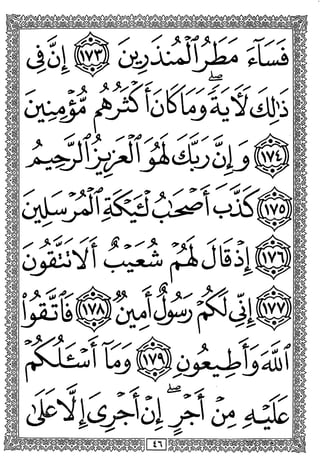 فَسَآءَ مَطَرُ ٱلْمُنذَرِينَ ١٧٣ إِنَّ فِى
ذَٰلِكَ لَءَايَةً ۖ وَمَا كَانَ أَكْثَرُهُم مُّؤْمِنِينَ
١٧٤ وَإِنَّ رَبَّكَ لَهُوَ ٱلْعَزِيزُ ٱلرَّحِيمُ
١٧٥ كَذَّبَ أَصْحَٰبُ لْـَٔيْكَةِ ٱلْمُرْسَلِينَ
١٧٦ إِذْ قَالَ لَهُمْ شُعَيْبٌ أَلَا تَتَّقُونَ
١٧٧ إِنِّى لَكُمْ رَسُولٌ أَمِينٌ ١٧٨ فَٱتَّقُوا۟
ٱللَّهَ وَأَطِيعُونِ ١٧٩ وَمَآ أَسْـَٔلُكُمْ
عَلَيْهِ مِنْ أَجْرٍ ۖ إِنْ أَجْرِىَ إِلَّا عَلَىٰ
٤٦